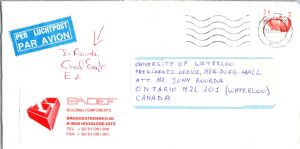 PER LUCHTPOST
PAR AVION
J. Roorda
UNIVERSITY OF WATERLOO
PRESIDENTS OFFICE, NEEDLES HALL
ATT. MR. JOHN ROORDA
ONTARIO N2L 3G1 (WATERLOO)
CANADA
SADEF
BUILDING COMPONENTS
BRUGGESTEENWEG 60
B-8830 HOOGLEDE-GITS
TEL + 32 51/261 208
FAX + 32 51/261 301